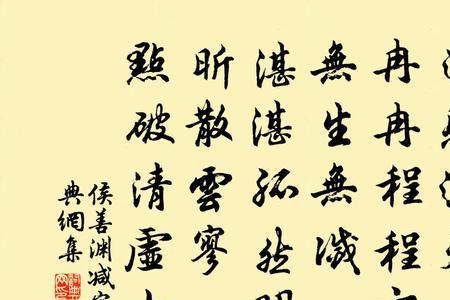 冉冉程程
無生無滅
湛湛孤然
昕散雲寥
點破清虛
侯善淵減
典網集